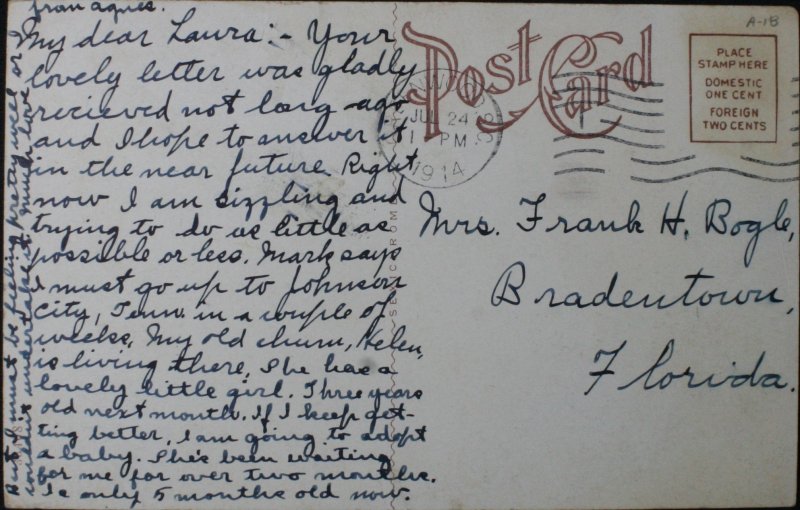 My dear Laura:- Your
lovely letter was gladly
recieved not long ago
and I hope to answer it
in the near future. Right
now I am sizzling and
trying to do as little as
possible or less. Mark says
I must go up to Johnson
City, Tenn. in a couple of
weeks. My old chum, Helen,
is living there. She has a
lovely little girl. Three years
old next month. If I keep get-
ting better, I am going to adopt
a baby. She's been waiting
for me for over two months.
Is only 5 months old now.
But I must be feeling pretty well or I
wouldn't undertake it. Much love
from agnes.
Post Card
JUL 24
1 PM
1914
A-18
PLACE
STAMP HERE
DOMESTIC
ONE CENT
FOREIGN
TWO CENTS
Mrs. Frank H. Bogle,
Bradentown,
Florida.